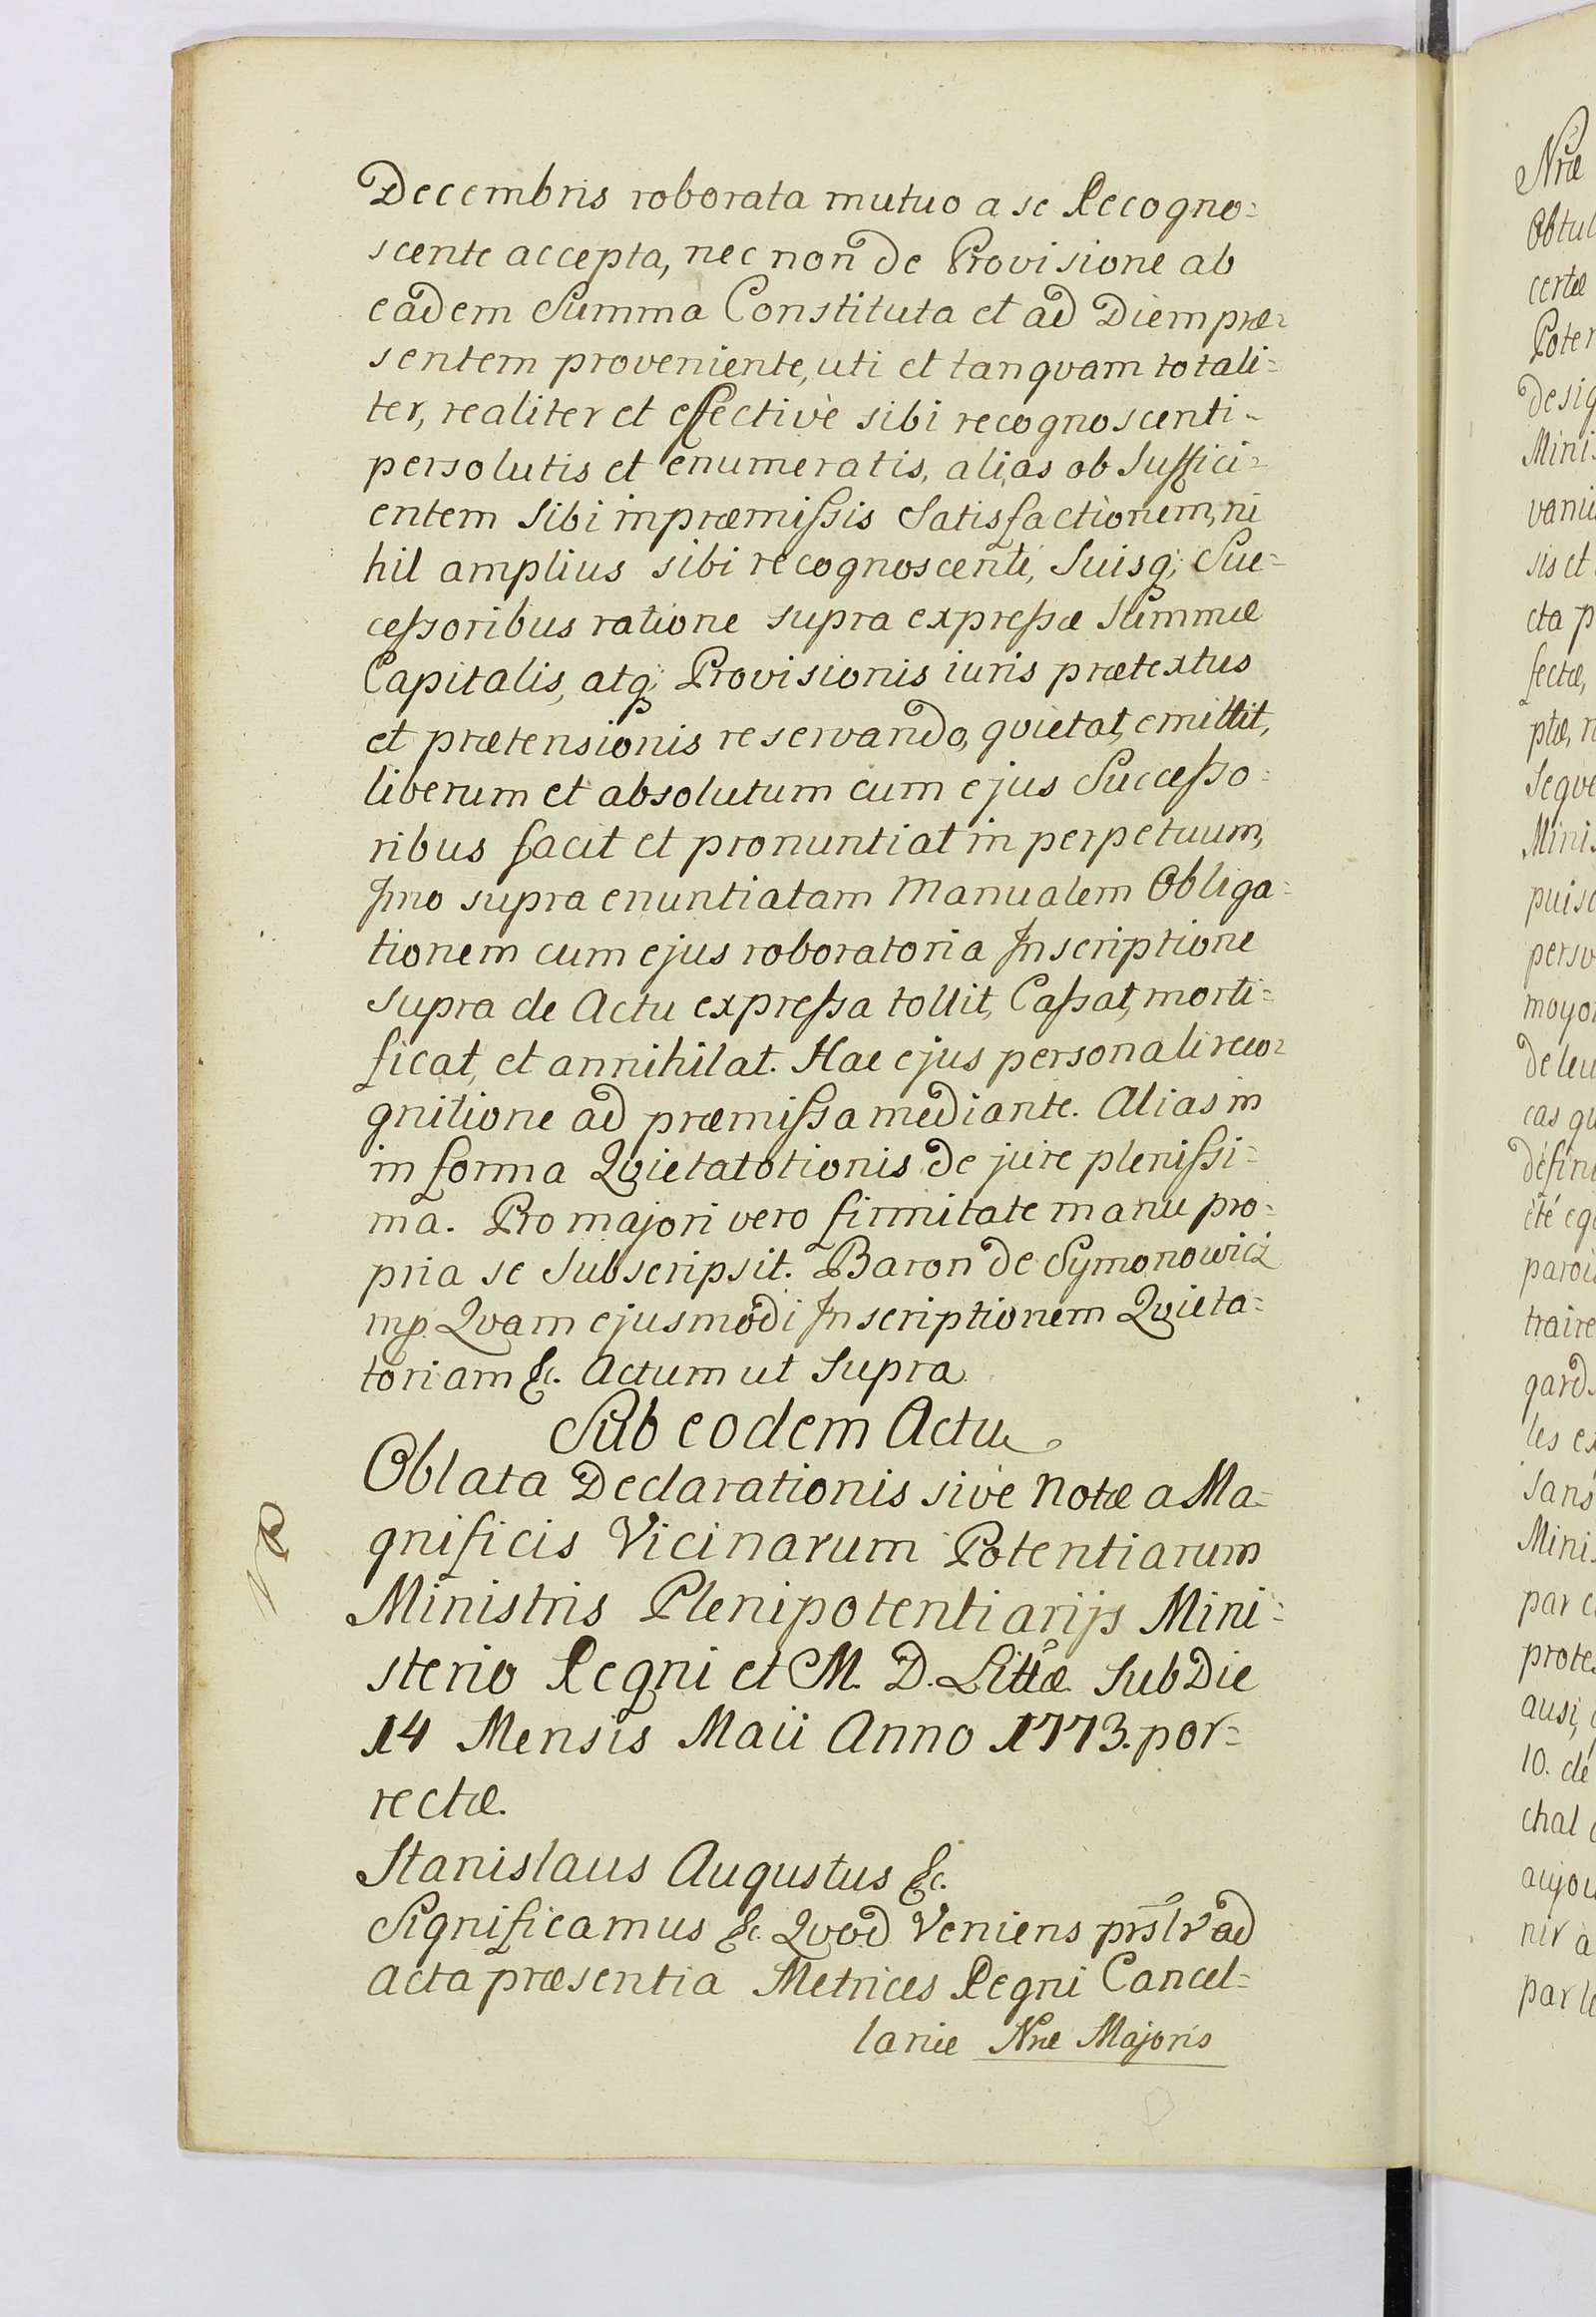 Decembris roborata mutuo a se Recogno=
scente accepta, nec non de Provisione ab
eadem Summa Constituta et ad Diem præ=
sentem proveniente, uti et tanqvam totali=
ter, realiter et effectivè sibi recognoscenti
persolutis et enumeratis, alias ob suffici=
entem sibi in præmissis Satisfactionem, ni
hil amplius sibi recognoscenti, suisq; Suc=
cessoribus ratione supra expressæ Summæ
Capitalis, atq; Provisionis iuris prætextus
et prætensionis reservando, qvietat, emittit,
liberum et absolutum cum ejus Successo=
ribus facit et pronuntiat in perpetuum,
Imo supra enuntiatam Manualem Obliga=
tionem cum ejus roboratoria Inscriptione
supra de Actu expressa tollit, Cassat, morti=
ficat, et annihilat. Hac ejus personali reco=
gnitione ad præmissa mediante. Alias in
in forma Qvietatotionis de jure plenissi=
ma. Pro majori vero firmitate manu pro=
pria se subscripsit. Baron de Symonowicz
mp. Qvam ejusmodi Inscriptionem Qvieta=
toriam &c. Actum ut supra
Sub eodem Actu
Oblata Declarationis sivè Notæ a Ma=
gnificis Vicinarum Potentiarum
Ministris Plenipotentiarijs Mini=
sterio Regni et M. D. Littæ sub Die
14 Mensis Maii Anno 1773. por=
rectæ.
Stanislaus Augustus &c.
Significamus &c. Qvod Veniens prslr ad
acta præsentia Metrices Regni Cancel=
lariæ Nræ Majoris
Nræ
Obtul
certæ
Poter
desig
Minis
vanie
sis et
cta p
fectæ,
ptæ, n
Seqve
Minis
puisc
perso
moyo
de leu
cas qu
défin
été eg
parois
traire
gard
les ex
sans
Minis
par c
protes
ausi,
10. de
chal
aujou
nir a
par le